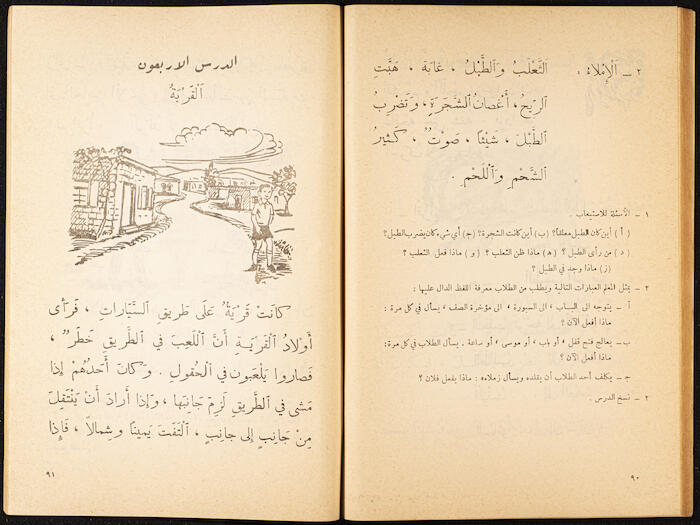 ٢ ــ اَلْإِمْلَاءُ : اَلثَّعْلَبُ وَالطَّبْلُ ، غَابَة ، هَبَّتِ
الرِّيحُ ، أَغْصَانُ الشَّجَرَةِ ، وَتَضْرِبُ
الطَّبْلَ ، شَيْئًا ، صَوْتٌ ، كَثِيرُ
الشَّحْمِ وَاللَّحْمِ .
١ ــ الأسئلة للاستيعاب .
( أ ) أين كان الطبل معلقاً؟ (ب) أين كانت الشجرة؟ (ج) أي شيء كان يضرب الطبل؟
( د ) من رأى الطبل ؟ ( ه ) ماذا ظن الثعلب ؟ ( و ) ماذا فعل الثعلب ؟
( ز ) ماذا وجد في الطبل ؟
٢ ــ يمثل المعلم العبارات التالية ويطلب من الطلاب معرفة اللفظ الدال عليها :
أ ــ يتوجه الى الباب ، الى السبورة ، الى مؤخرة الصف ، يسأل في كل مرة :
ماذا أفعل الآن ؟
ب ــ يعالج فتح قفل ، أو باب ، أو موسى ، أو ساعة . يسأل الطلاب في كل مرة :
ماذا أفعل الآن ؟
ج ــ يكلف أحد الطلاب أن يقلده ويسأل زملاءه : ماذا يفعل فلان ؟
٢ ــ نسخ الدرس .
٩٠
الدرس الاربعون
اَلْقَرْيَةُ
كَانَتْ قَرْيَةٌ عَلَى طَرِيقِ السَّيَّارَاتِ ، فَرَأَى
أَوْلَادُ الْقَرْيَةِ أَنَّ اللَّعِبَ فِي الطَّرِيقِ خَطَرٌ ،
فَصَارُوا يَلْعَبُونَ فِي الْحُقُولِ . وَكَانَ أَحَدُهُمْ إِذَا
مَشَى فِي الطَّرِيقِ لَزِمَ جَانِبَهَا ، وَإِذَا أَرَادَ أَنْ يَنْتَقِلَ
مِنْ جَانِبٍ إِلَى جَانِبٍ ، الْتَفَتَ يَمِينًا وَشِمَالًا ، فَإِذَا
٩١